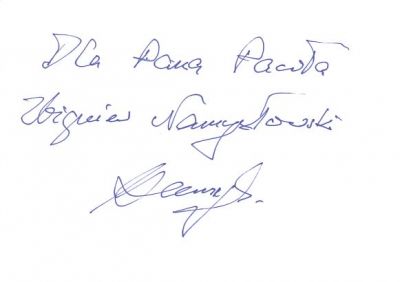 Dla Pana Pawła
Zbigniew Namysłowski